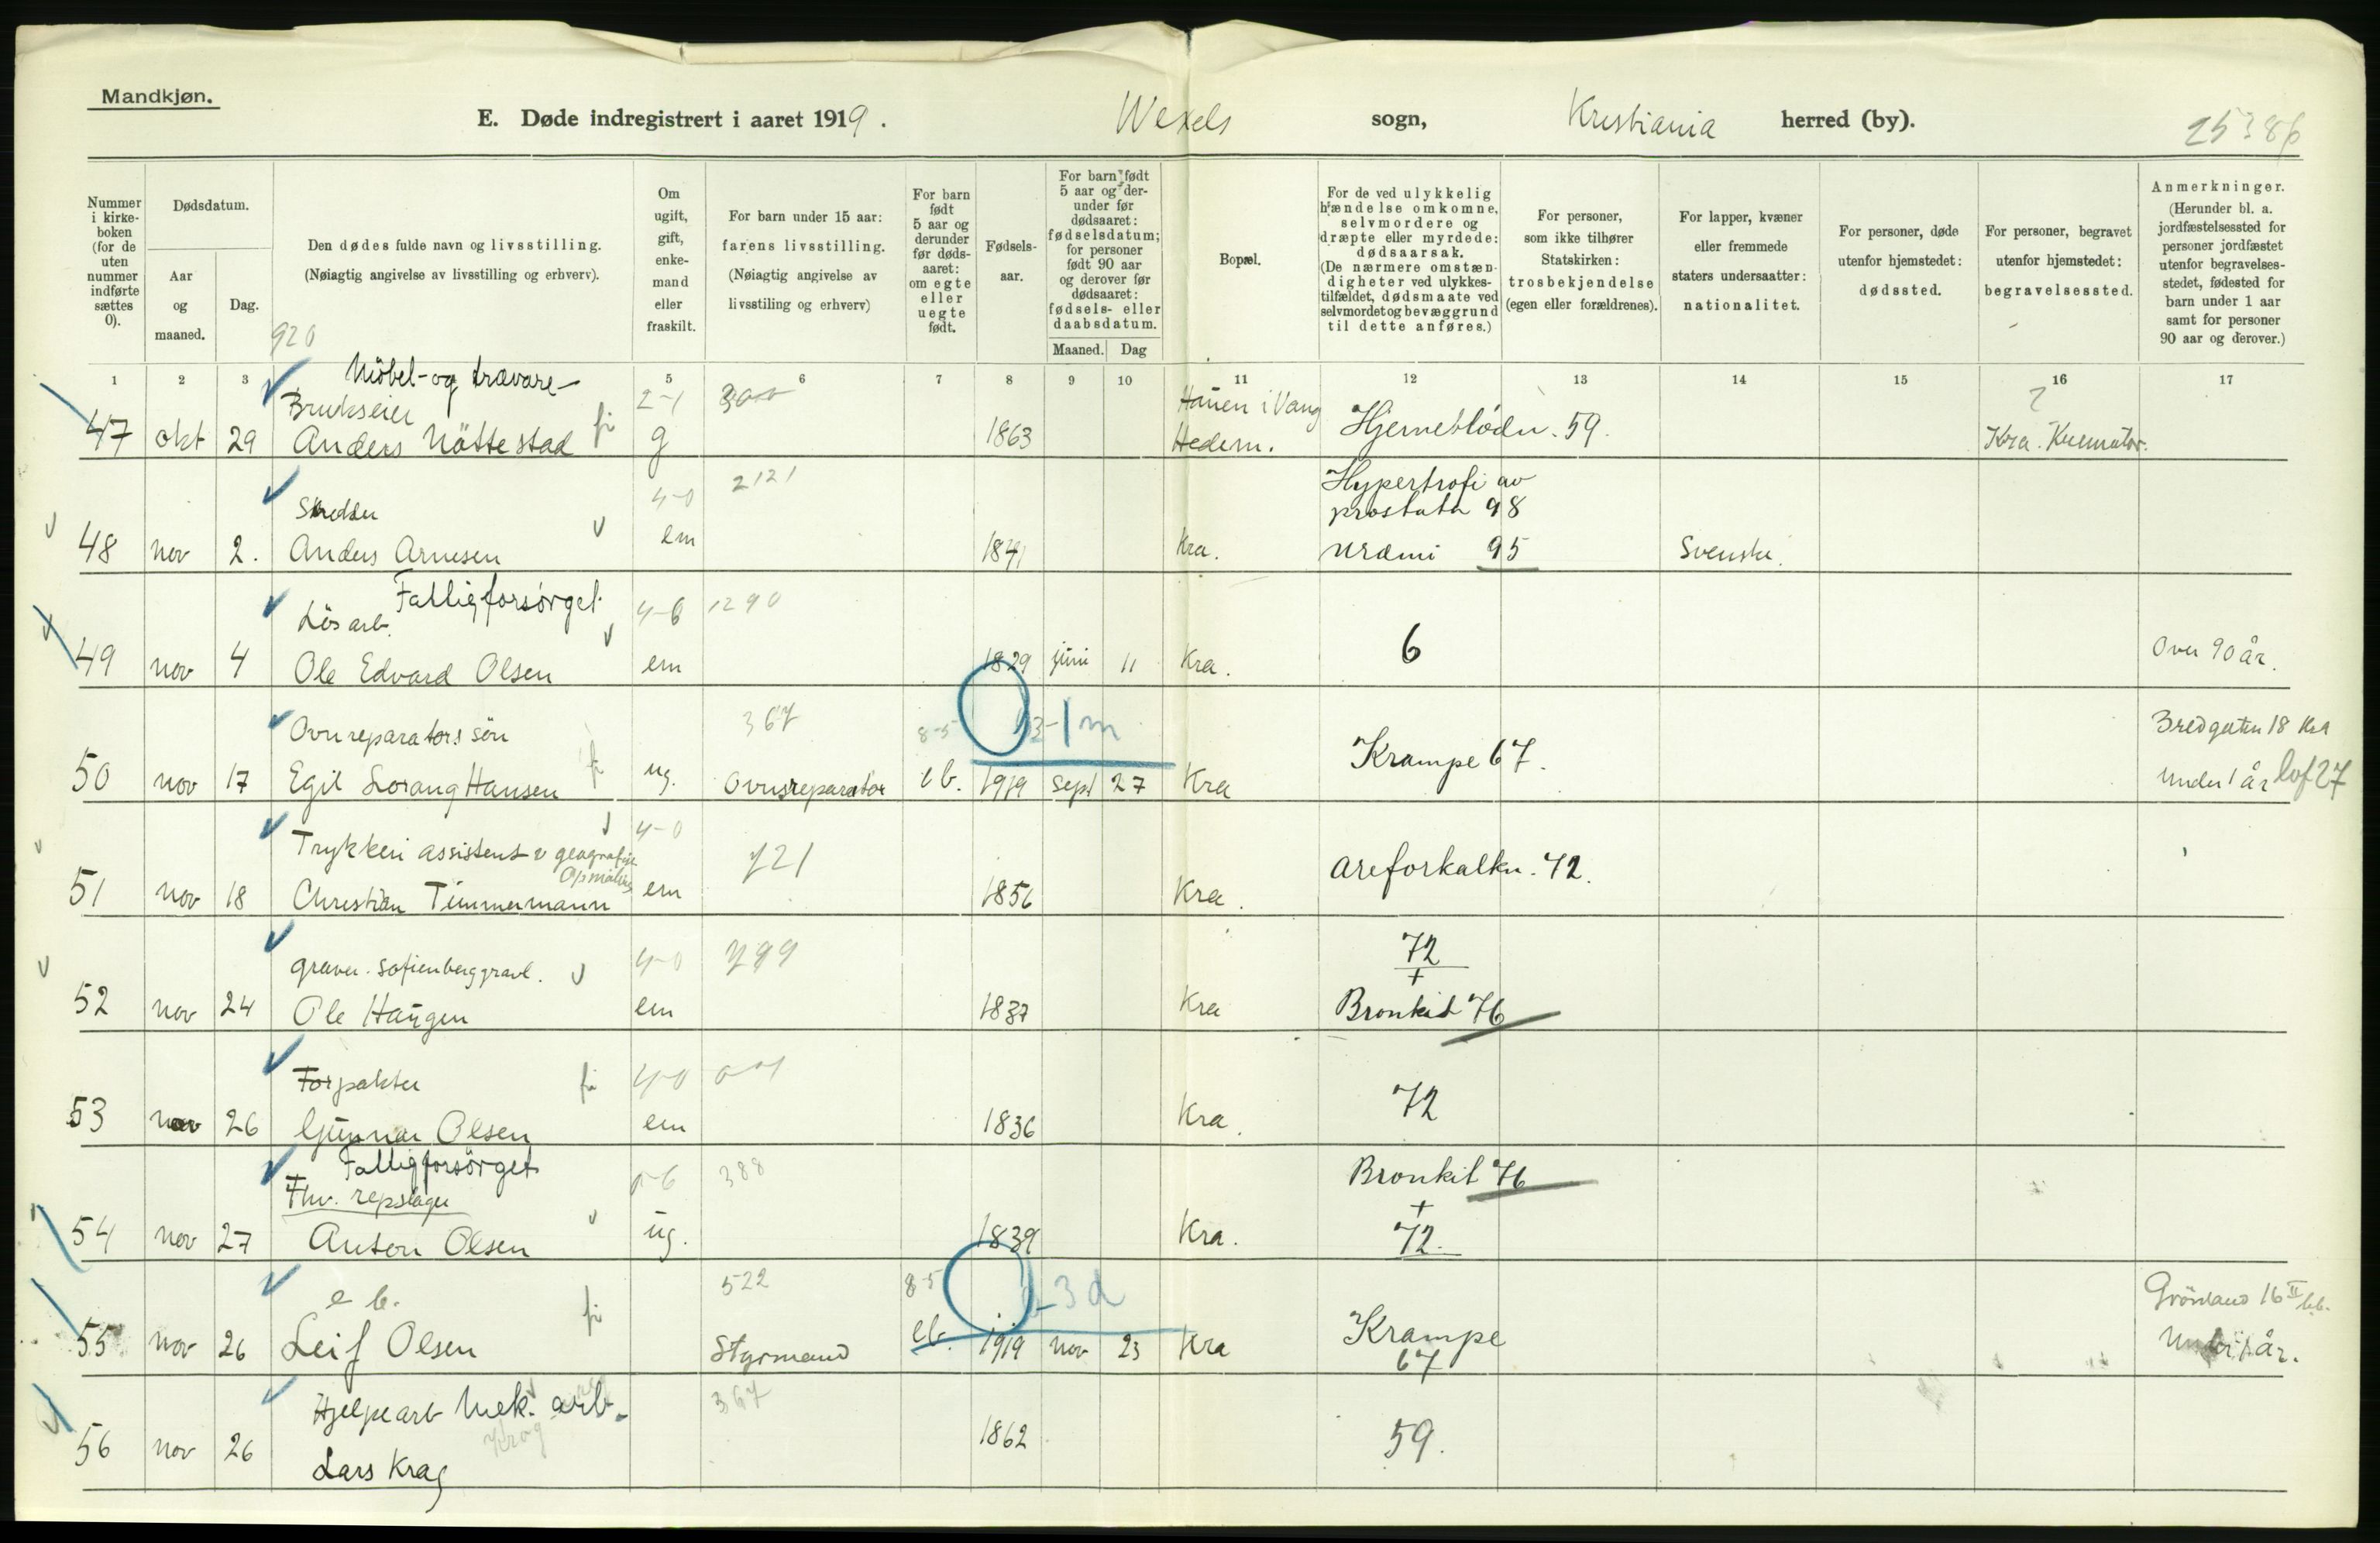 Mandkjøn.
E. Døde indregistrert i aaret 1919. Wexels sogn, Kristiania herred (by).
Nummer i kirke-boken (for de uten nummer indførte sættes 0).
Dødsdatum.
Aar og maaned.
Dag.
Den dødes fulde navn og livsstilling.
(Nøiagtig angivelse av livsstilling og erhverv).
Om ugift, gift, enke-mand eller fraskilt.
For barn under 15 aar: farens livsstilling.
(Nøiagtig angivelse av livsstiling og erhverv)
For barn født 5 aar og derunder før døds-aaret: om egte eller uegte født.
Fødsels-aar.
For barn født 5 aar og der-under før dødsaaret: fødselsdatum; for personer født 90 aar og derover før dødsaaret: fødsels- eller daabsdatum.
Maaned. Dag
Bopæl.
For de ved ulykkelig hændelse omkomne, selvmordere og dræpte eller myrdede: dødsaarsak.
(De nærmere omstæn-digheter ved ulykkes-tilfældet, dødsmaate ved selvmordet og bevæggrund til dette anføres.)
For personer, som ikke tilhører Statskirken: trosbekjendelse (egen eller forældrenes).
For lapper, kvæner eller fremmede staters undersaatter: nationalitet.
For personer, døde utenfor hjemstedet: dødssted.
For personer, begravet utenfor hjemstedet: begravelsessted.
Anmerkninger.
(Herunder bl. a. jordfæstelsessted for personer jordfæstet utenfor begravelses-stedet, fødested for barn under 1 aar samt for personer 90 aar og derover.)
920
1 2 3 5 6 7 8 9 10 11 12 13 14 15 16 17
Möbel- og trævare-
Brukseier 2-1 Hauen i Vang ?
47 okt 29 Anders Nöttestad g 1863 Hedem. Hjerneblødn. 59. Kra. Kremator.
4-0 2121 Hypertrofi av
Skredder prostata 98
48 nov 2. Anders Arnesen em 1841 Kra. Uræmi 95 Svensk.
Fattigforsörget
Lösarb. 4-6 1290
49 nov 4 Ole Edvard Olsen em 1829 juni 11 Kra. 6 Over 90 år.
Ovnreparatørs sön 367 8-5 1m Bredgaten 18 Kra
50 nov 17 Egil Lorang Hansen ug. Ovnsreparatör eb. 1919 Sept 27 Kra Krampe 67. Under 1 år
4-0
Trykkeri assistent v geografiske Opmåling 721
51 nov 18 Christian Timmermann em 1856 Kra. Areforkalkn. 72.
graver. Sofienberg gravl. 4-0 799 72
+
52 nov 24 Ole Haugen em 1837 Kra Bronkit 76
Forpakter 4-0
53 nov 26 Gunnar Olsen em 1836 Kra. 72
Fattigforsörget
Fhv. repslager 388 Bronkit 76
+
54 nov 27 Anton Olsen ug. 1839 Kra. 72
e b. 522 8-5 3 d Grönland 16 II
55 nov 26 Leif Olsen Styrmand eb. 1919 nov 23 Kra Krampe 67 Under 1 år.
Hjelpearb Mek. arb. 367
Krog
56 nov 26 Lars Krag 1862 59.